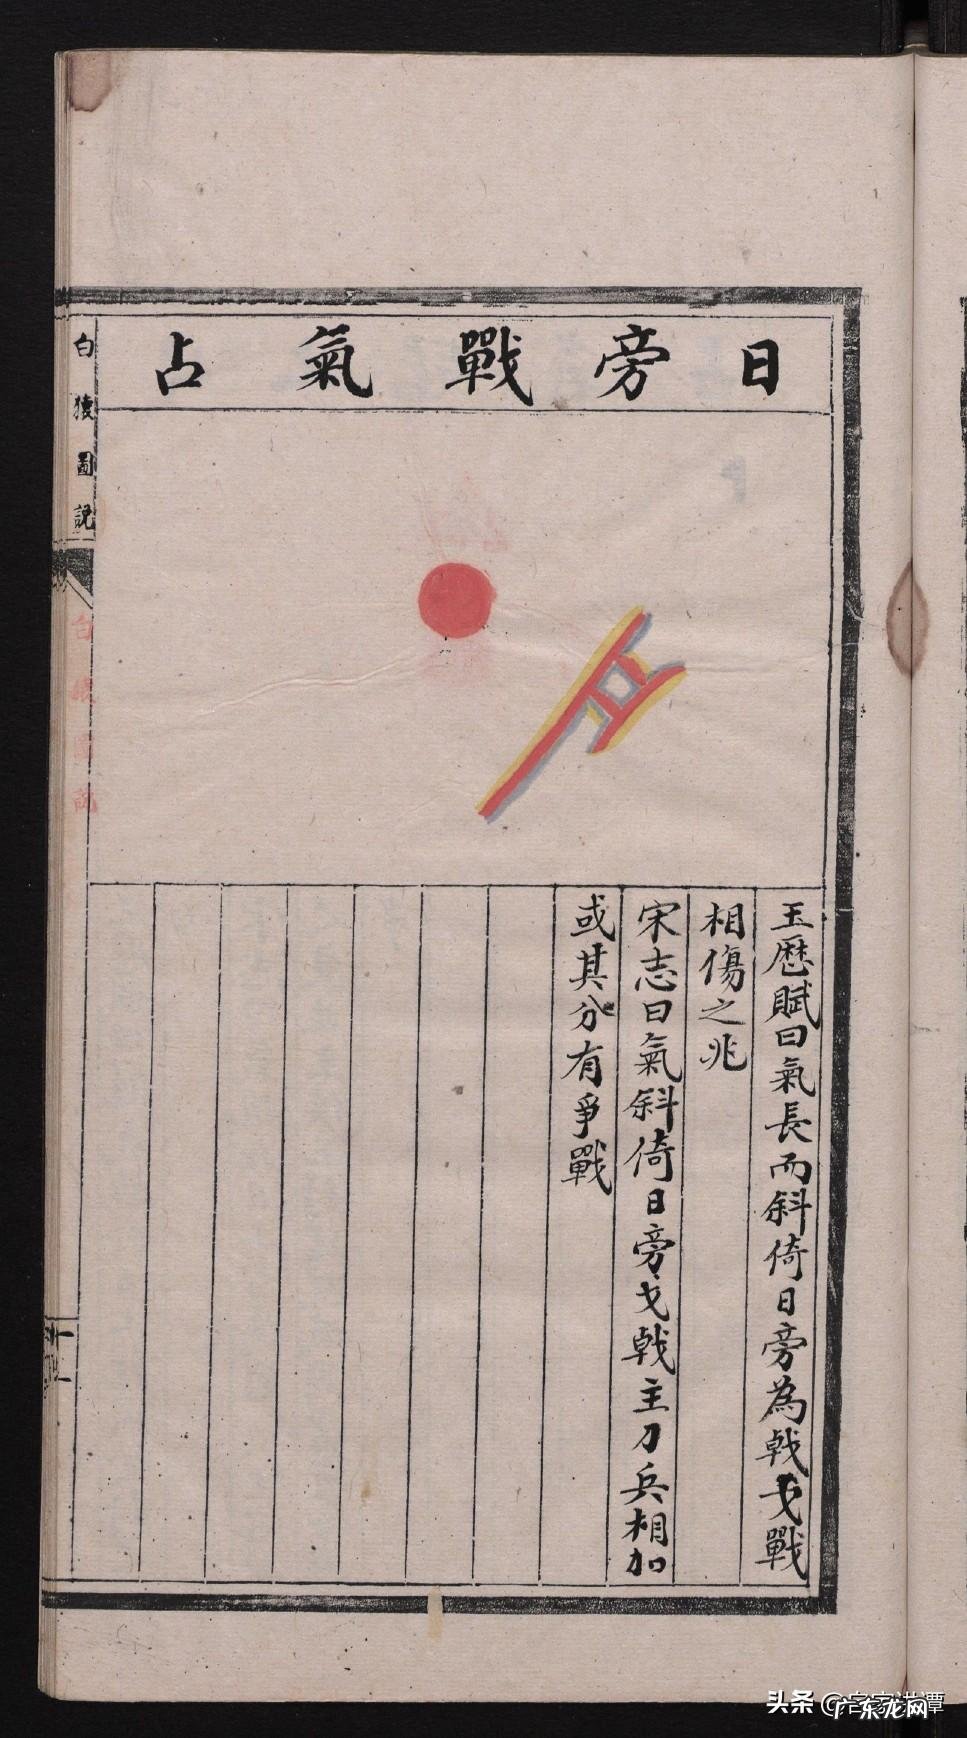 日旁戰氣占
玉歷賦曰氣長而斜倚日旁為戟戈戰
相傷之兆
宋志曰氣斜倚日旁戈戟主刀兵相加
或其分有爭戰
白猿圖說
白猿圖說
頭条
广东龙网